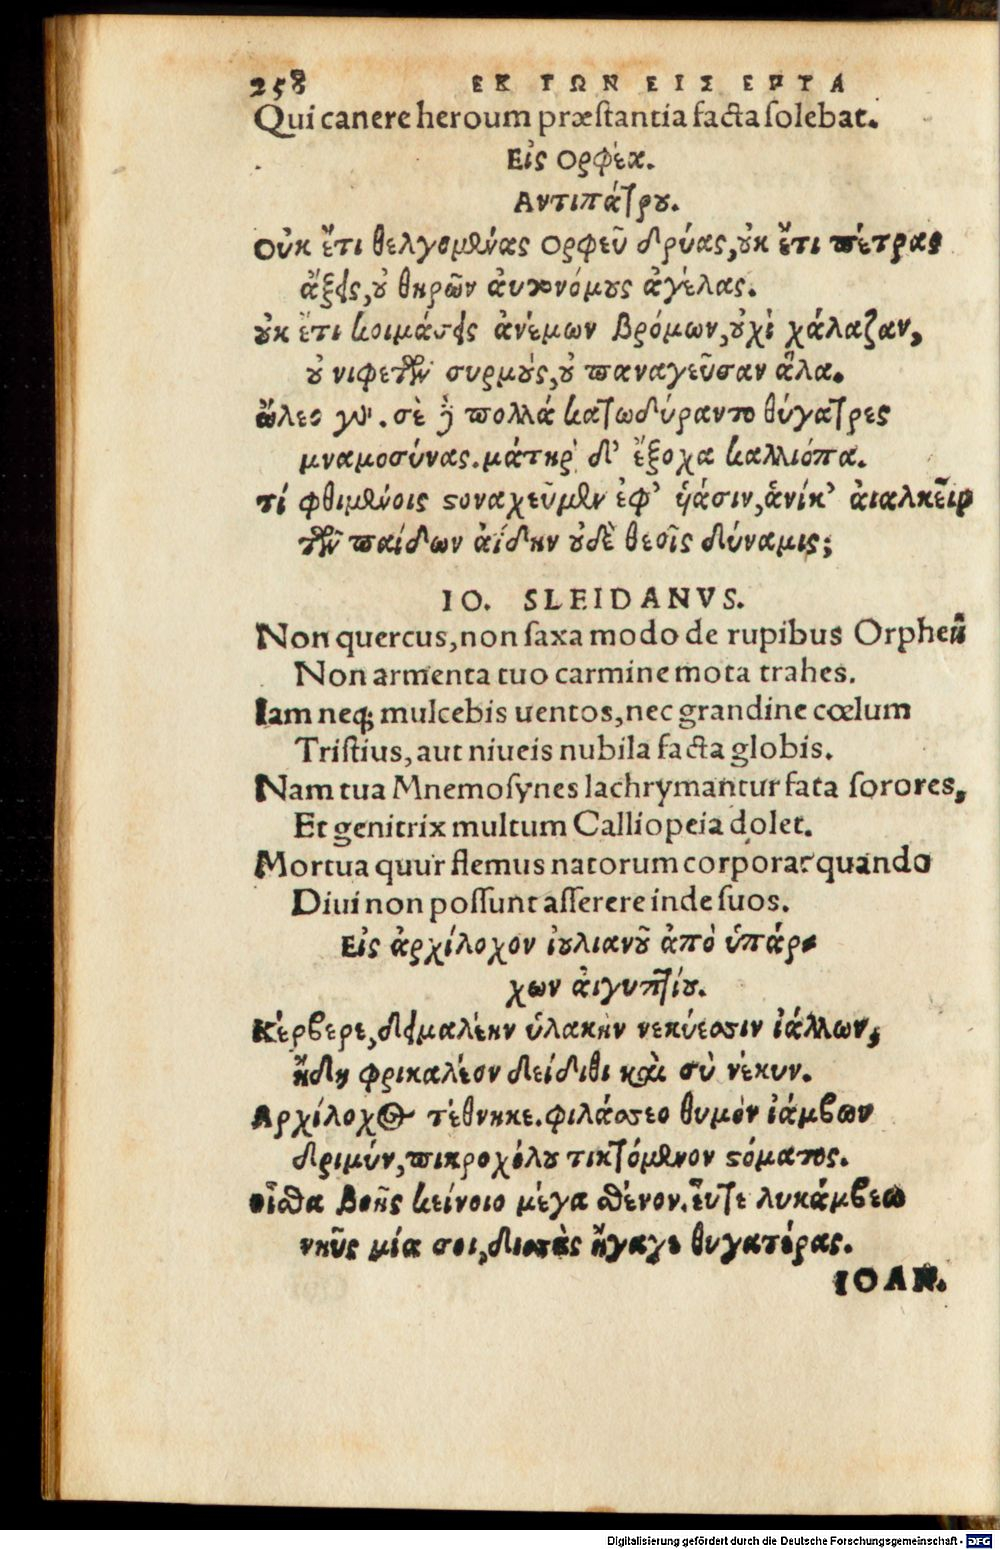 258 ΕΚ ΤΩΝ ΕΙΣ ΕΠΤΑ
Qui canere heroum præstantia facta solebat.
Εἰς Ορφέα.
Αντιπάτρου.
Οὐκ ἔτι θελγομένας Ορφεῦ δρύας, οὐκ ἔτι πέτρας
ἄξεις, οὐ θηρῶν αὐτονόμους ἀγέλας.
οὐκ ἔτι κοιμάσεις ἀνέμων βρόμων, οὐχὶ χάλαζαν,
οὐ νιφετῶν συρμούς, οὐ παναγεῦσαν ἅλα.
ὤλεο γάρ. σὲ δὲ πολλὰ κατωδύραντο θύγατρες
μναμοσύνας. μάτηρ δ' ἔξοχα καλλιόπα.
τί φθιμένοις στοναχεῦμεν ἐφ' υἱάσιν, ἁνίκ' ἀιαλκεῖν
τῶν παίδων ἀίδην οὐδὲ θεοῖς δύναμις;
IO. SLEIDANVS.
Non quercus, non saxa modo de rupibus Orpheu
Non armenta tuo carmine mota trahes.
Iam neq; mulcebis uentos, nec grandine cœlum
Tristius, aut niueis nubila facta globis.
Nam tua Mnemosynes lachrymantur fata sorores,
Et genitrix multum Calliopeia dolet.
Mortua quur flemus natorum corpora? quando
Diui non possunt asserere inde suos.
Εἰς ἀρχίλοχον ἰουλιανοῦ ἀπὸ ὑπάρ-
χων ἀιγυπτίου.
Κέρβερε, δειμαλέην ὑλακὴν νεκύεσσιν ἰάλλων,
ἤδη φρικαλέον δείδιθι καὶ σὺ νέκυν.
Αρχίλοχος τέθνηκε. φιλάσσεο θυμὸν ἰάμβων
δριμὺν, πικροχόλου τικτόμενον στόματος.
οἶσθα βοῆς κείνοιο μέγα σθένον. εὖτε λυκάμβεω
νηῦς μία σοι, δισσὰς ἤγαγε θυγατέρας.
IOAN.
Digitalisierung gefördert durch die Deutsche Forschungsgemeinschaft - DFG